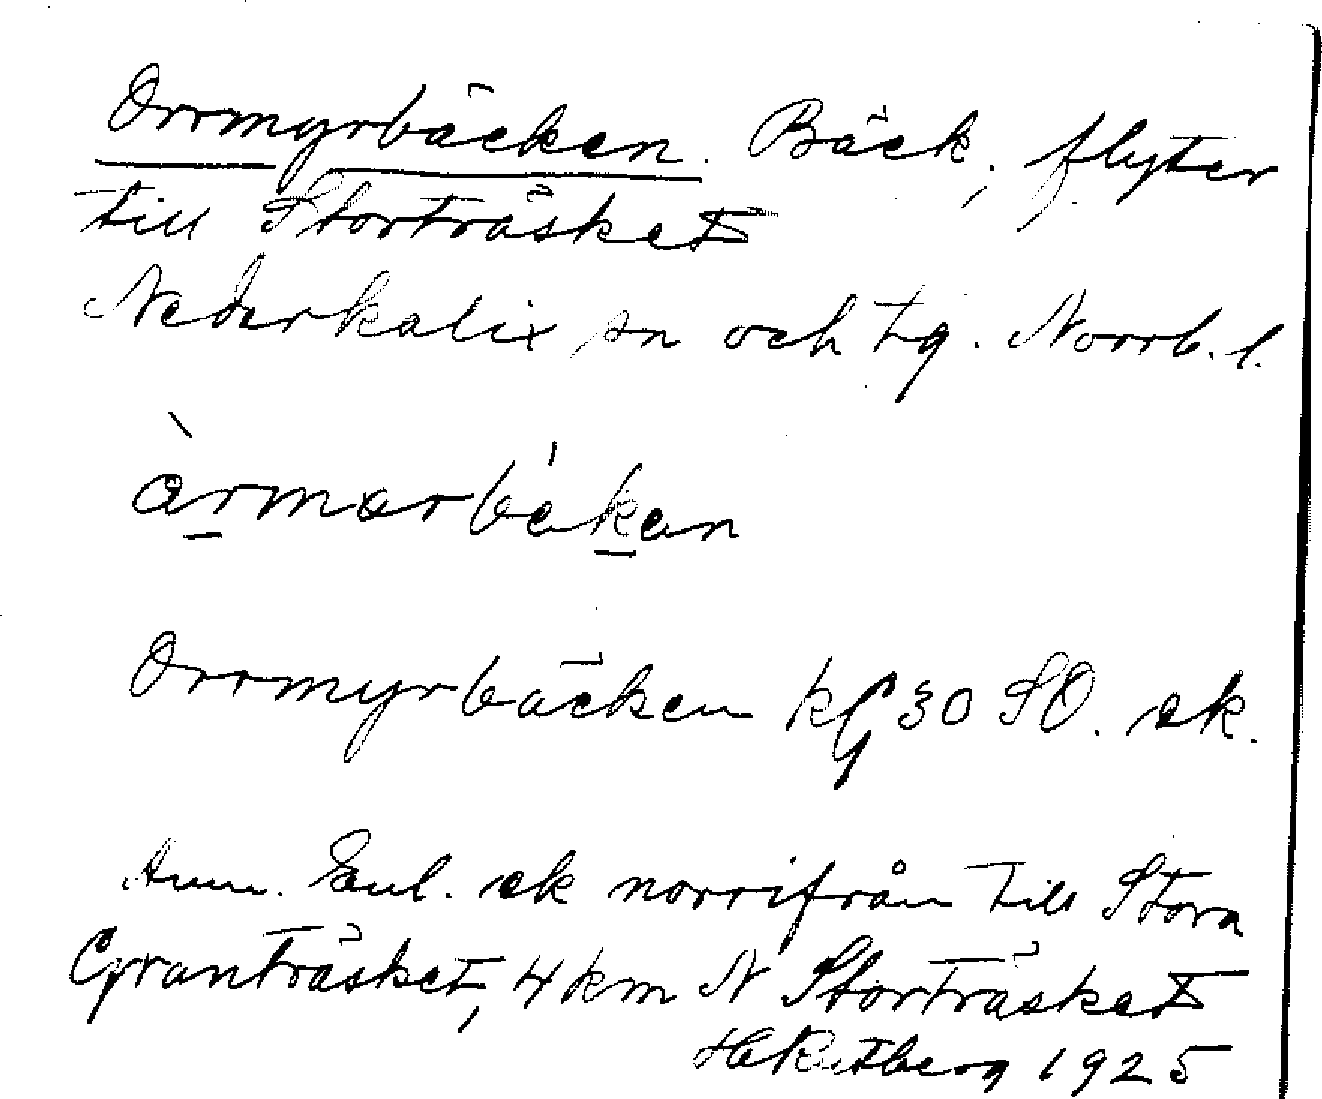 Orrmyrbäcken. Bäck, flyter
till Storträsket
Nederkalix sn och tg. Norrb. l.
òrmorbä́kan
Orrmyrbäcken kG 30 SO. ek.
Anm. Enl. ek norrifrån till Stora
Granträsket, 4 km N Storträsket
1925